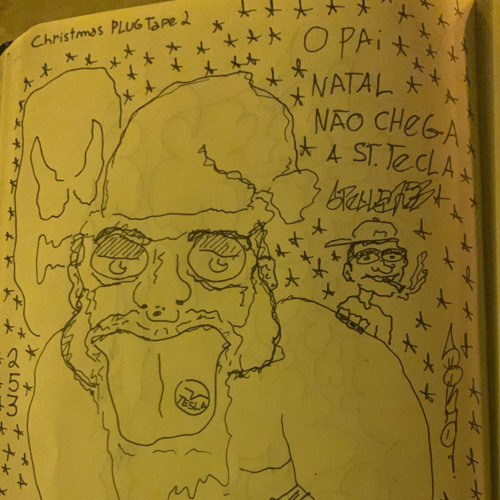 Christmas PLUG Tape 2
O PAi
NATAL
NÃO CHeGA
A ST. TecLA
TESLA
253